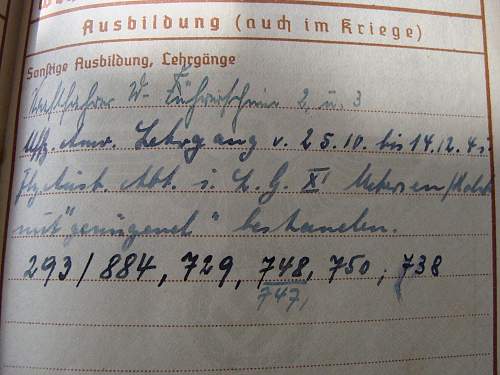 Ausbildung (auch im Kriege)
Sonstige Ausbildung, Lehrgänge
Kraftfahrer W- Führerschein 2 u. 3
Uffz. Anw. Lehrgang v. 25.10. bis 14.12.4
Abt. i. L. G. XI Uetersen/
mit "genügend" bestanden.
293/884, 729, 748, 750, 738
747,